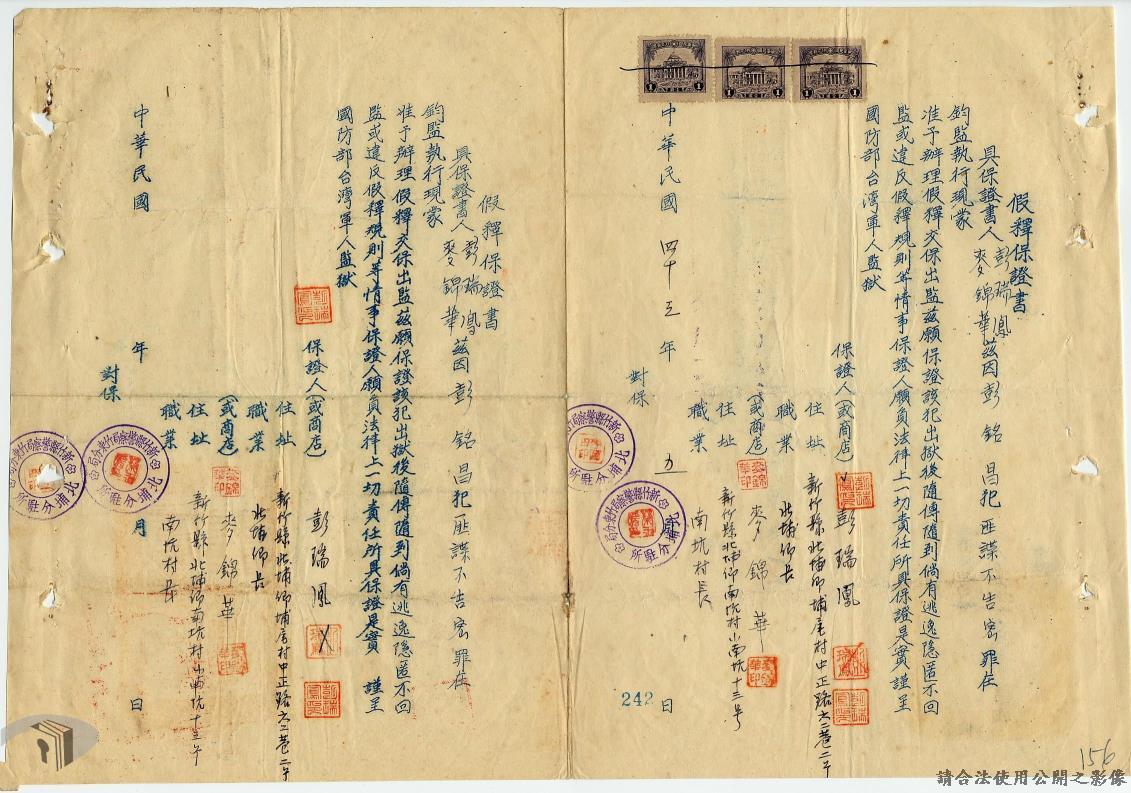 假釋保證書
具保證書人彭瑞鳳
麥錦華茲因彭銘昌犯匪諜不告密罪在
鈞監執行現蒙
准予辦理假釋交保出監茲願保證該犯出獄後隨傳隨到倘有逃逸隱匿不回
監或違反假釋規則等情事保證人願負法律上一切責任所具保證是實謹呈
國防部台灣軍人監獄
保證人(或商店)彭瑞鳳
住址 新竹縣北埔鄉埔尾村中正路六二巷二号
職業 北埔鄉長
(或商店)麥錦華
住址 新竹縣北埔鄉南坑村小南坑十三号
職業 南坑村長
對保
中華民國四十三年 九 242 日
假釋保證書
具保證書人彭瑞鳳
麥錦華茲因彭銘昌犯匪諜不告密罪在
鈞監執行現蒙
准予辦理假釋交保出監茲願保證該犯出獄後隨傳隨到倘有逃逸隱匿不回
監或違反假釋規則等情事保證人願負法律上一切責任所具保證是實 謹呈
國防部台灣軍人監獄
保證人(或商店)彭瑞鳳
住址 新竹縣北埔鄉埔尾村中正路六二巷二号
職業 北埔鄉長
(或商店)麥錦華
住址 新竹縣北埔鄉南坑村小南坑十三号
職業 南坑村長
對保
中華民國 年 月 日
新竹縣警察局竹東分局
北埔分駐所
156
請合法使用公開之影像